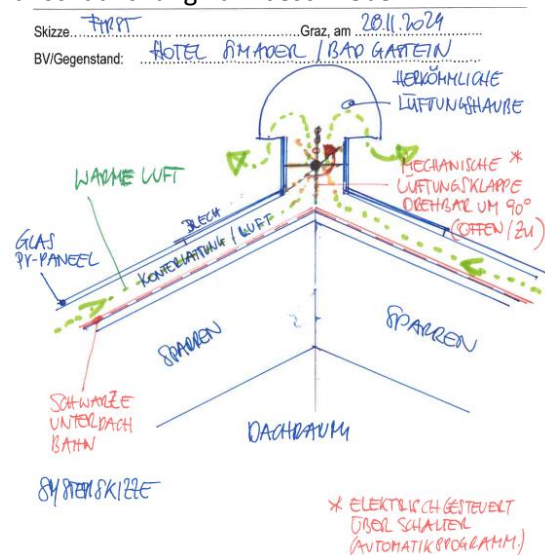 Skizze FIRST Graz, am 28.11.2024
BV/Gegenstand: HOTEL SMARER / BAD GASTEIN
HERKÖMMLICHE
LÜFTUNGSHAUBE
WARME LUFT
MECHANISCHE *
LÜFTUNGSKLAPPE
DREHBAR UM 90°
(OFFEN / ZU)
BLECH
GLAS
PV-PANEEL
KONTERLATTUNG / LUFT
SPARREN
SPARREN
SCHWARZE
UNTERDACH
BAHN
DACHRAUM
SYSTEMSKIZZE
* ELEKTRISCH GESTEUERT
ÜBER SCHALTER
(AUTOMATIKPROGRAMM.)